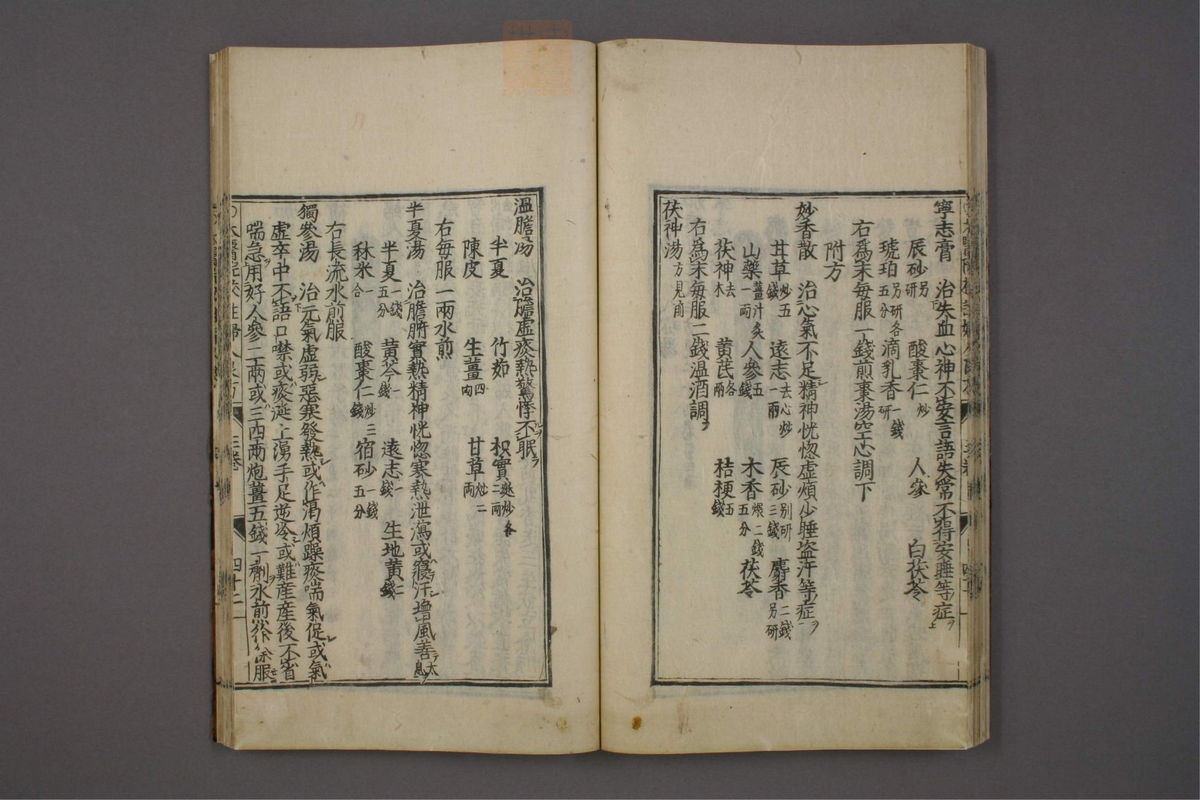 寧志膏　治失血心神不安言語失常不得安睡等症
辰砂另研　酸棗仁炒　人參　白茯苓
琥珀另研各五分　滴乳香一錢研
右爲末每服一錢煎棗湯空心調下
附方
妙香散　治心氣不足精神恍惚虛煩少睡盜汗等症
甘草炒五錢　遠志去心炒一兩　辰砂別研三錢　麝香二錢另研
山藥薑汁炙一兩　人參五錢　木香煨二錢五分　茯苓
茯神去木　黃芪各一兩　桔梗五錢
右爲末每服二錢溫酒調
茯神湯方見前
溫膽湯　治膽虛痰熱驚悸不眠
半夏　竹茹　枳實麩炒各二兩
陳皮　生薑四兩　甘草炒二兩
右每服一兩水煎
半夏湯　治膽腑實熱精神恍惚寒熱泄瀉或寢汗增風善太息
半夏一錢五分　黃芩一錢　遠志一錢　生地黃二錢
秫米一合　酸棗仁炒三錢　宿砂一錢五分
右長流水煎服
獨參湯　治元氣虛弱惡寒發熱或作渴煩躁痰喘氣促或氣
虛卒中不語口噤或痰涎上湧手足逆冷或難產產後不省
喘急用好人參二兩或三四兩炮薑五錢一劑水煎徐徐服
四十二